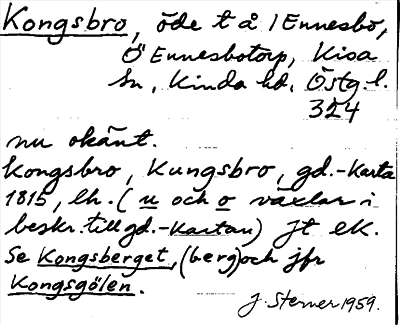 Kongsbro, öde t å 1 Ennesbo,
Ö Ennesbotorp, Kisa
sn, Kinda hd, Östg. l.
324
nu okänt.
Kongsbro, Kungsbro, gd.-Karta
1815, lh. (u och o växlar i
beskr. till gd.-Kartan) jt ek.
Se Kongsberget, (berg) och jfr
Kongsgölen.
J. Sterner 1959.